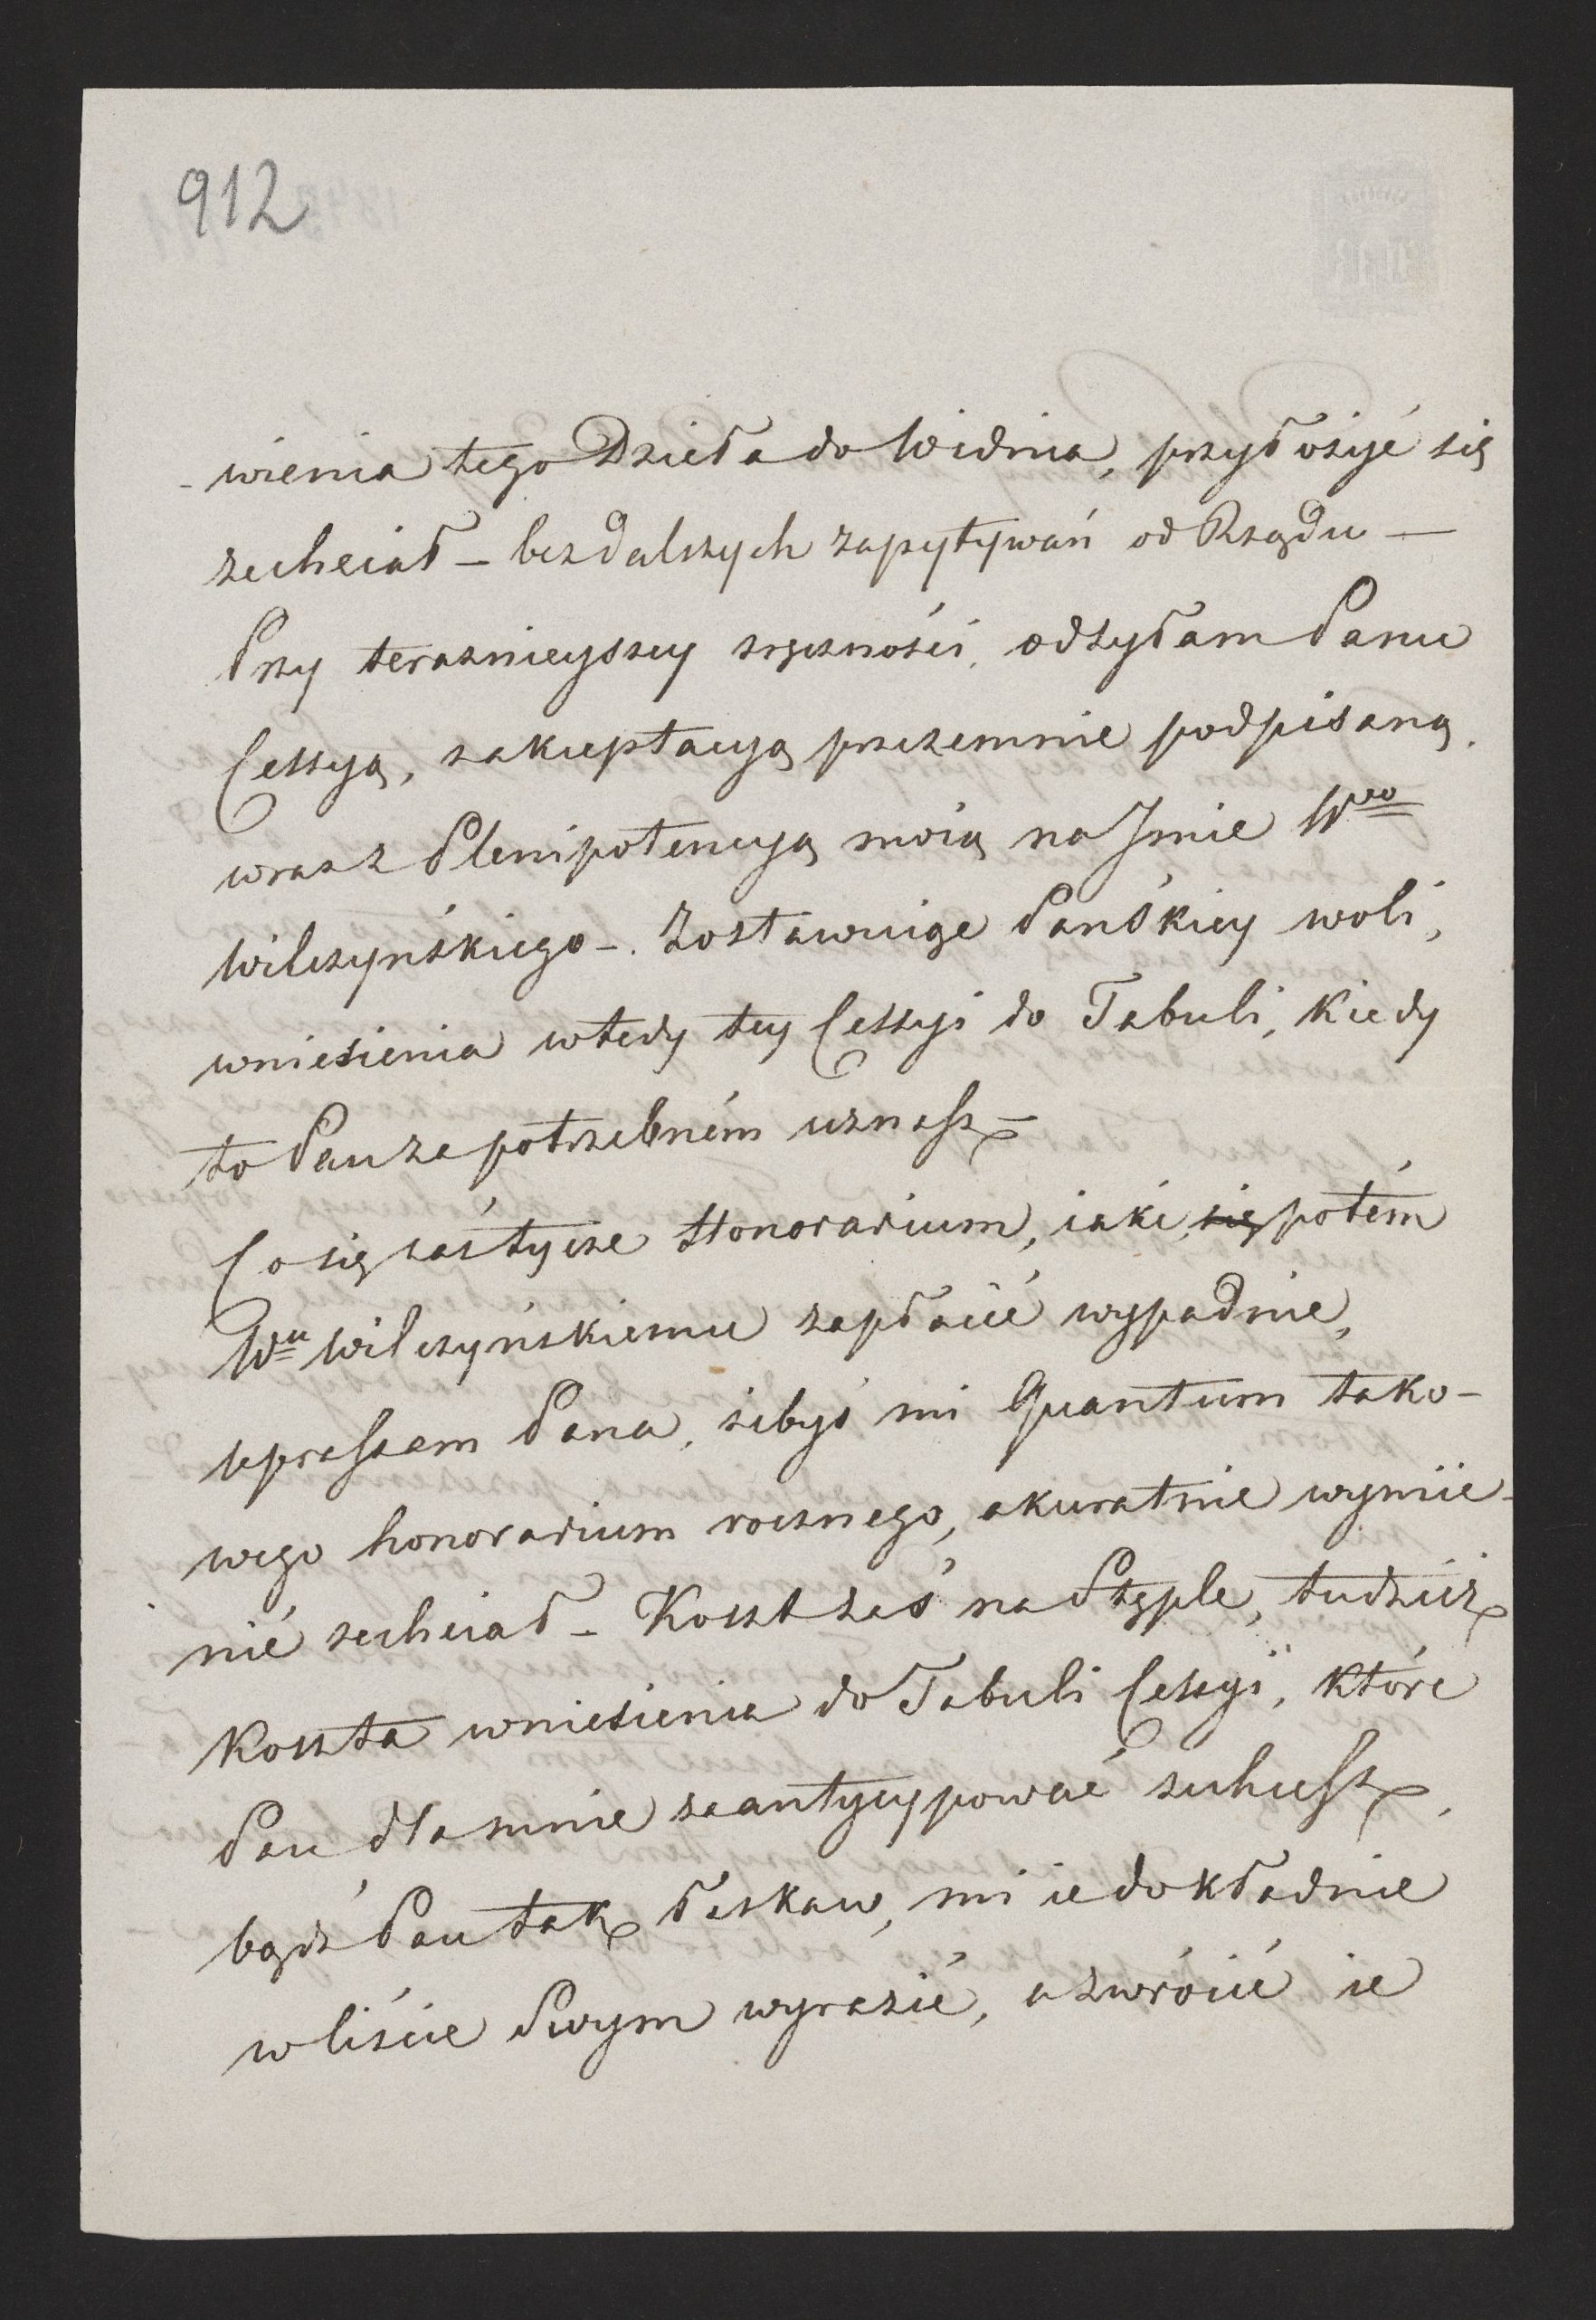 912
-wienia tego Dzieła do Widnia, przyłożyć się
zechciał – bez dalszych zapytywań od Rządu –
Przy teraznieyszey zręczności, odsyłam Panu
Cessyą, zakceptacyą przezemnie podpisaną,
wraz z Plenipotencyą moią na Jmie Wgo
Wilczyńskiego –. Zostawuiąc Pańskiey woli,
wniesienia wtedy tey Cessyi do Tabuli, kiedy
to Pan za potrzebném uznasz –
Co się zaś tycze Honorarium, iakie się potém
Wu Wilczyńskiemu zapłacić wypadnie,
upraszam Pana, żebyś mi Quantum tako-
wego honorarium rocznego, akuratnie wymie-
nić zechciał – Koszt zaś na Stęple, tudzież
koszta wniesienia do Tabuli Cessyi, które
Pan dla mnie zaantycypować zechcesz,
bądź Pan tak łaskaw, mi ie dokładnie
w liście Swym wyrazić, a zwrócić ie